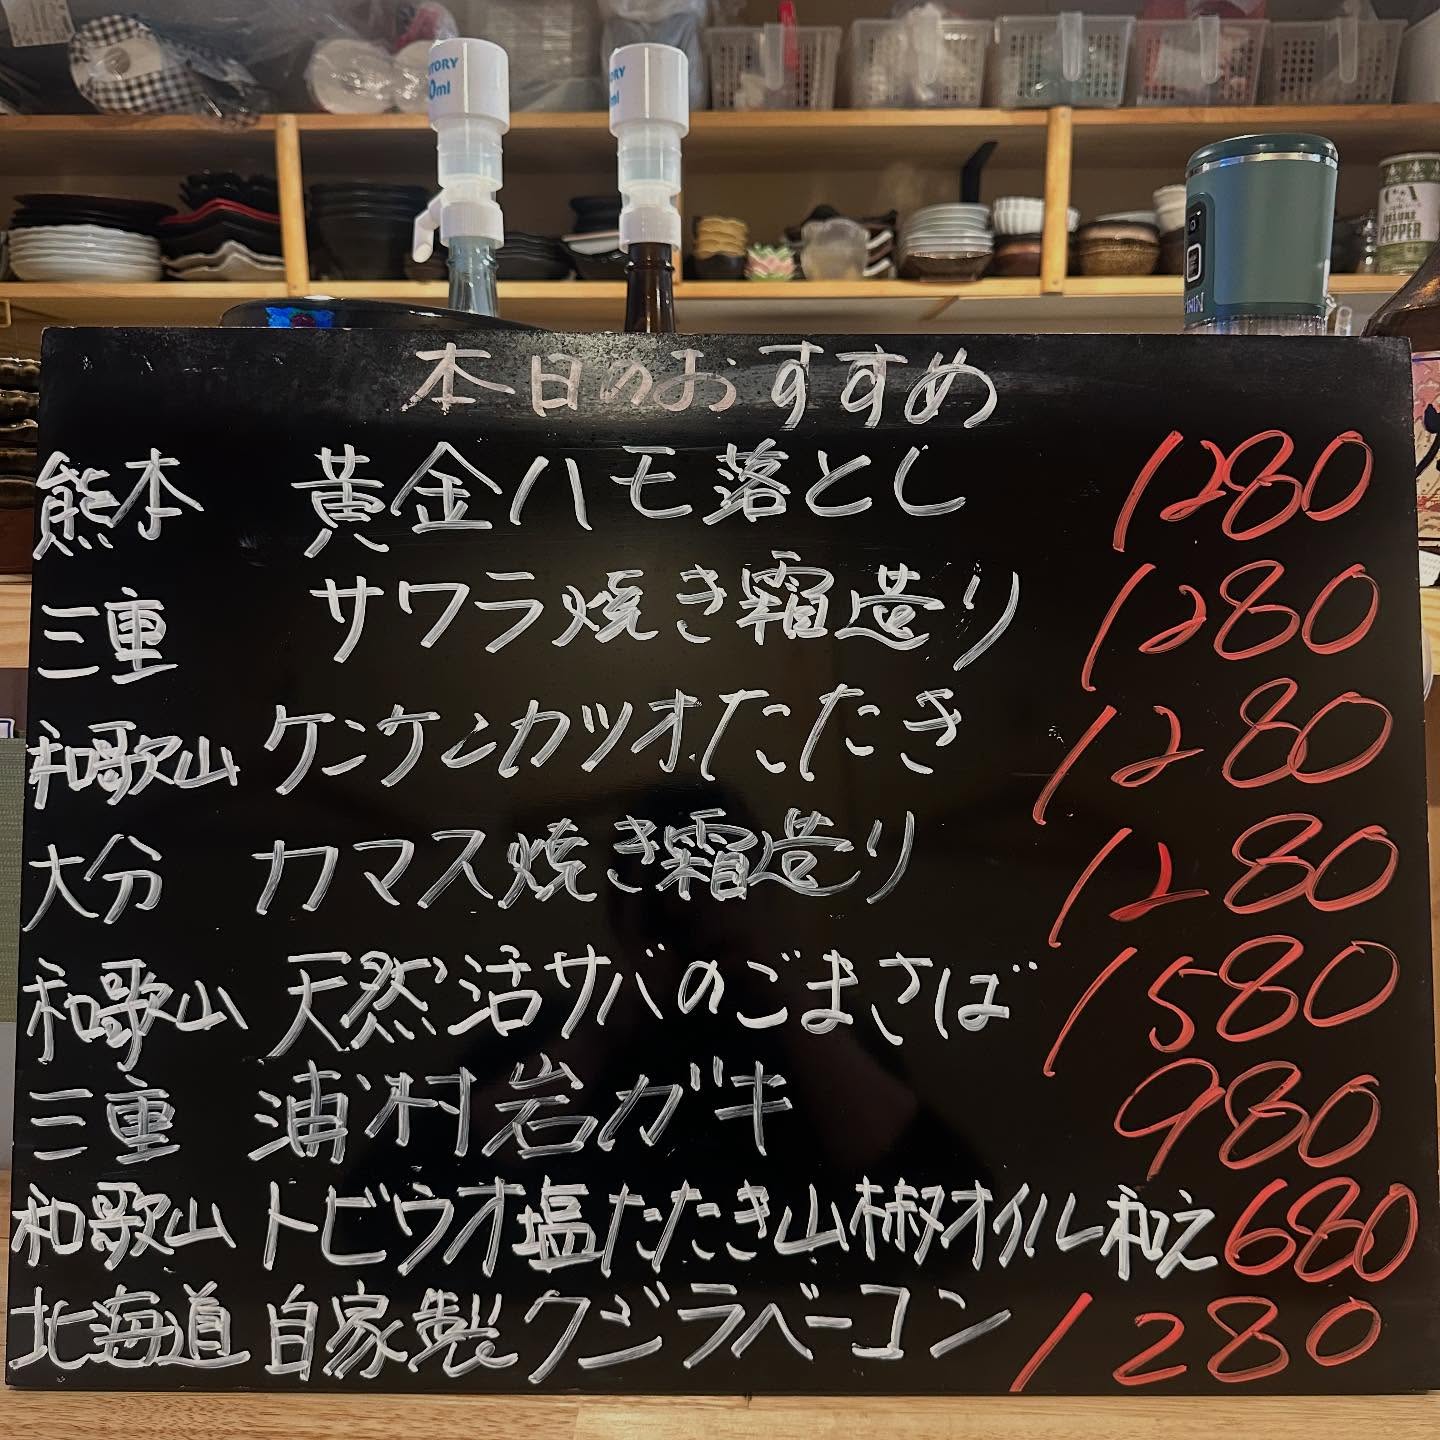 TORY
0ml
TORY
ml
DELUXE
PEPPER
本日のおすすめ
熊本 黄金ハモ落とし 1280
三重 サワラ焼き霜造り 1280
和歌山 ケンケンカツオたたき 1280
大分 カマス焼き霜造り 1280
和歌山 天然活サバのごまさば 1580
三重 浦村岩ガキ 980
和歌山 トビウオ塩たたき山椒オイル和え 680
北海道 自家製クジラベーコン 1280